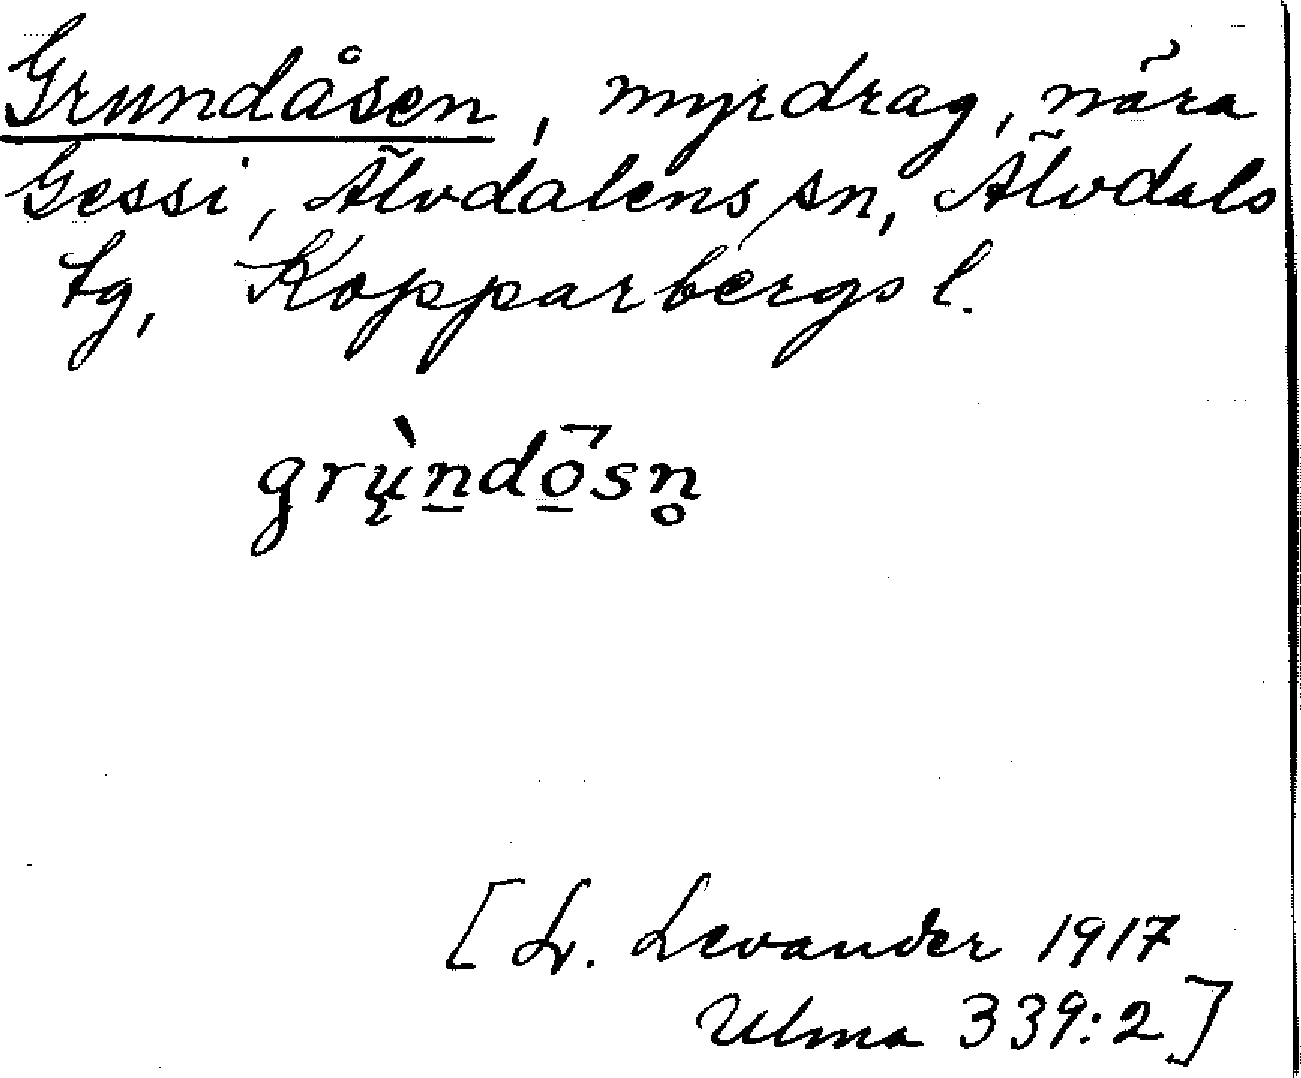 Grundåsen, myrdrag, nära
Gessi, Älvdalens sn, Älvdals
tg, Kopparbergs l.
grų̀ṉdō̱sn̥
[L. Levander 1917
Ulma 339:2]